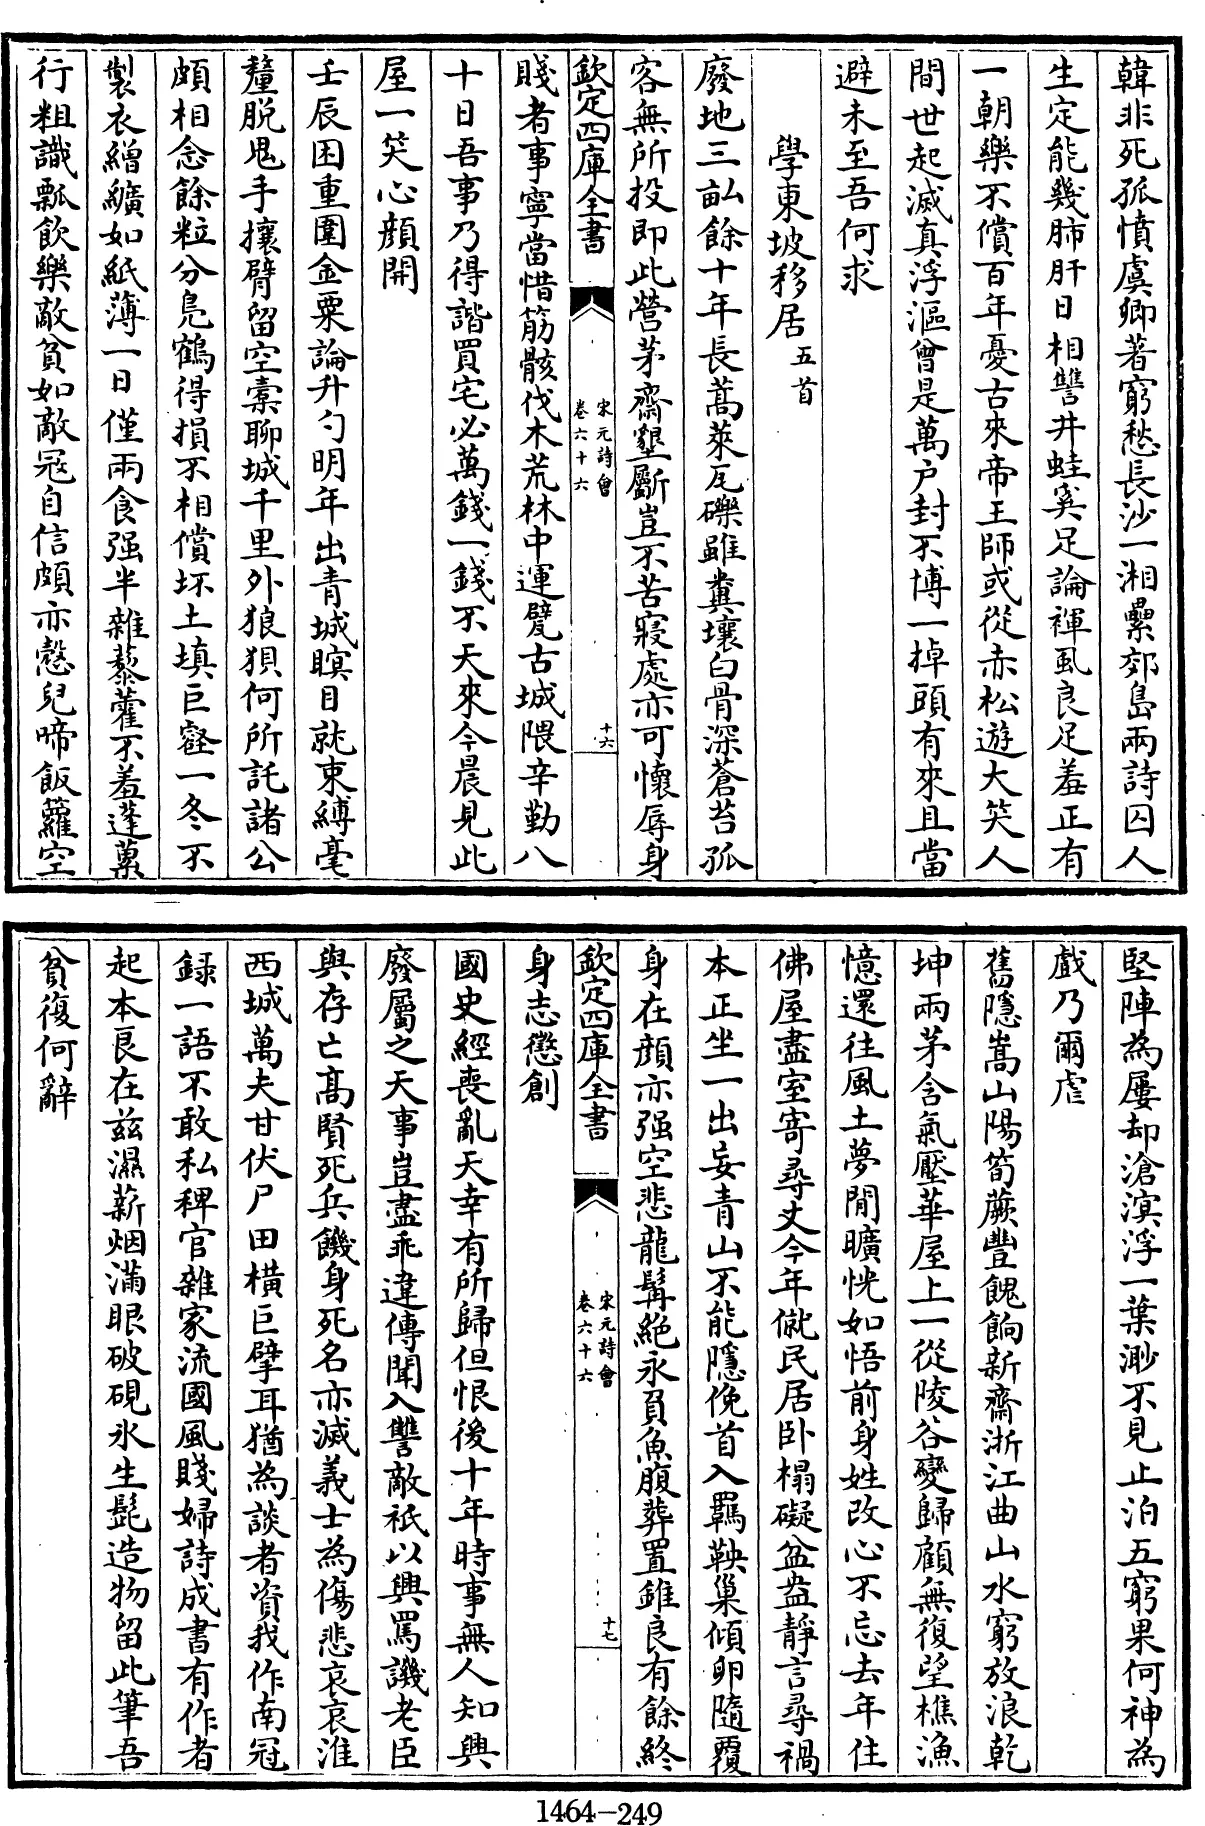 韓非死孤憤虞卿著窮愁長沙一湘纍郊島兩詩囚人
生定能幾肺肝日相讐井蛙奚足論褌虱良足羞正有
一朝樂不償百年憂古來帝王師或從赤松遊大笑人
間世起滅真浮漚曾是萬户封不博一掉頭有來且當
避未至吾何求
學東坡移居五首
廢地三畝餘十年長蒿萊瓦礫雖糞壤白骨深蒼苔孤
客無所投即此營茅齋墾斸豈不苦寢處亦可懷辱身
欽定四庫全書
宋元詩會
卷六十六
十六
賤者事寧當惜筋骸伐木荒林中運甓古城隈辛勤八
十日吾事乃得諧買宅必萬錢一錢不天來今晨見此
屋一笑心顔開
壬辰困重圍金粟論升勺明年出青城瞑目就束縛毫
釐脱鬼手攘臂留空橐聊城千里外狼狽何所託諸公
頗相念餘粒分鳬鶴得損不相償抔土填巨壑一冬不
製衣繒纊如紙薄一日僅兩食强半雜藜藿不羞蓬蔂
行粗識瓢飲樂敵貧如敵冦自信頗亦慤兒啼飯籮空
堅陣為屢却滄溟浮一葉渺不見止泊五窮果何神為
戲乃爾虐
舊隱嵩山陽筍蕨豐餽餉新齋浙江曲山水窮放浪乾
坤兩茅舍氣壓華屋上一從陵谷變歸顧無復望樵漁
憶還往風土夢閒曠恍如悟前身姓改心不忘去年住
佛屋盡室寄尋丈今年僦民居卧榻礙盆盎静言尋禍
本正坐一出妄青山不能隱俛首入羈鞅巢傾卵隨覆
身在顔亦强空悲龍髯絶永負魚腹葬置錐良有餘終
欽定四庫全書
宋元詩會
卷六十六
十七
身志懲創
國史經喪亂天幸有所歸但恨後十年時事無人知興
廢屬之天事豈盡乖違傳聞入讐敵衹以興罵譏老臣
與存亡高賢死兵饑身死名亦滅義士為傷悲哀哀淮
西城萬夫甘伏尸田横巨擘耳猶為談者資我作南冠
録一語不敢私稗官雜家流國風賤婦詩成書有作者
起本良在兹濕薪烟滿眼破硯氷生髭造物留此筆吾
貧復何辭
1464-249